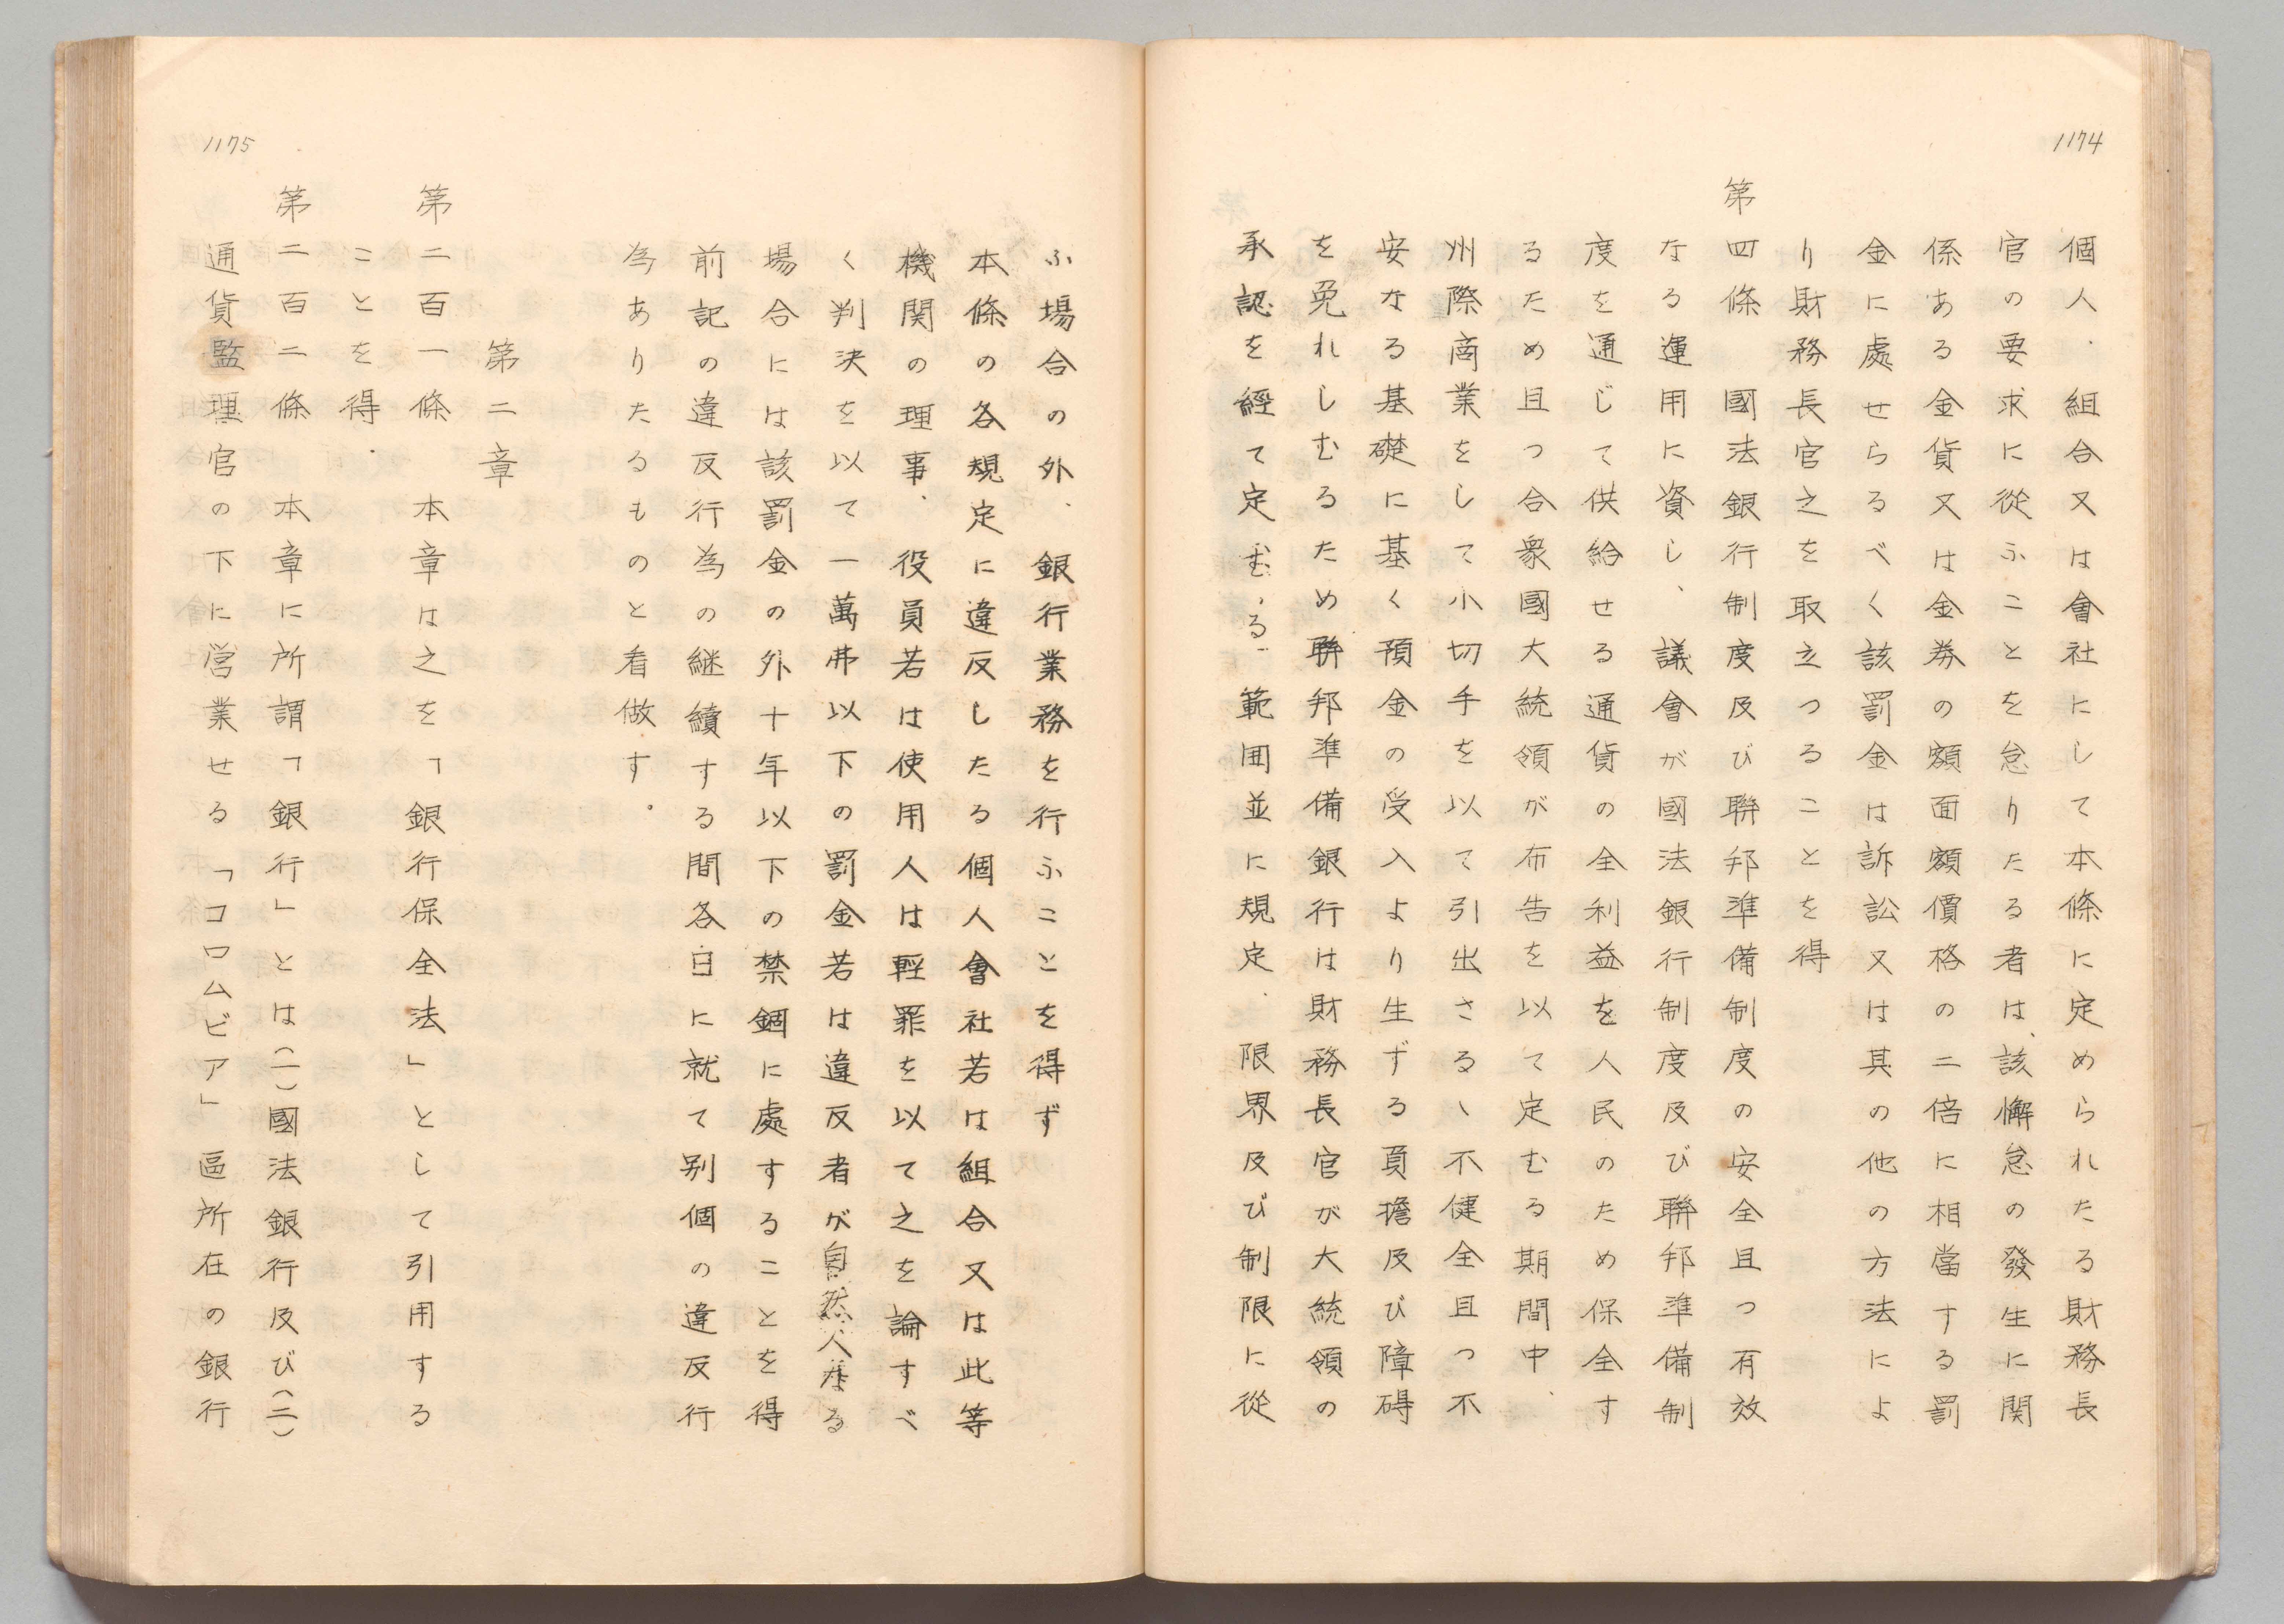 1174
個人、組合又は會社にして本條に定められたる財務長
官の要求に從ふことを怠りたる者は、該懈怠の發生に関
係ある金貨又は金券の額面額價格の二倍に相當する罰
金に處せらるべく該罰金は訴訟又は其の他の方法によ
り財務長官之を取立つることを得
第四條　國法銀行制度及び聯邦準備制度の安全且つ有效
なる運用に資し、議會が國法銀行制度及び聯邦準備制
度を通じて供給せる通貨の全利益を人民のため保全す
るため且つ合衆國大統領が布告を以て定むる期間中、
州際商業をして小切手を以て引出さるゝ不健全且つ不
安なる基礎に基く預金の受入より生ずる負擔及び障碍
を免れしむるため聯邦準備銀行は財務長官が大統領の
承認を経て定むる範囲並に規定、限界及び制限に從
1175
ふ場合の外、銀行業務を行ふことを得ず
本條の各規定に違反したる個人會社若は組合又は此等
機関の理事、役員若は使用人は輕罪を以て之を論すべ
く判決を以て一萬弗以下の罰金若は違反者が自然人なる
場合には該罰金の外十年以下の禁錮に處することを得
前記の違反行為の継續する間各日に就て別個の違反行
為ありたるものと看做す。
第二章
第二百一條　本章は之を「銀行保全法」として引用する
ことを得、
第二百二條　本章に所謂「銀行」とは(一)國法銀行及び(二)
通貨監理官の下に営業せる「コロムビア」區所在の銀行